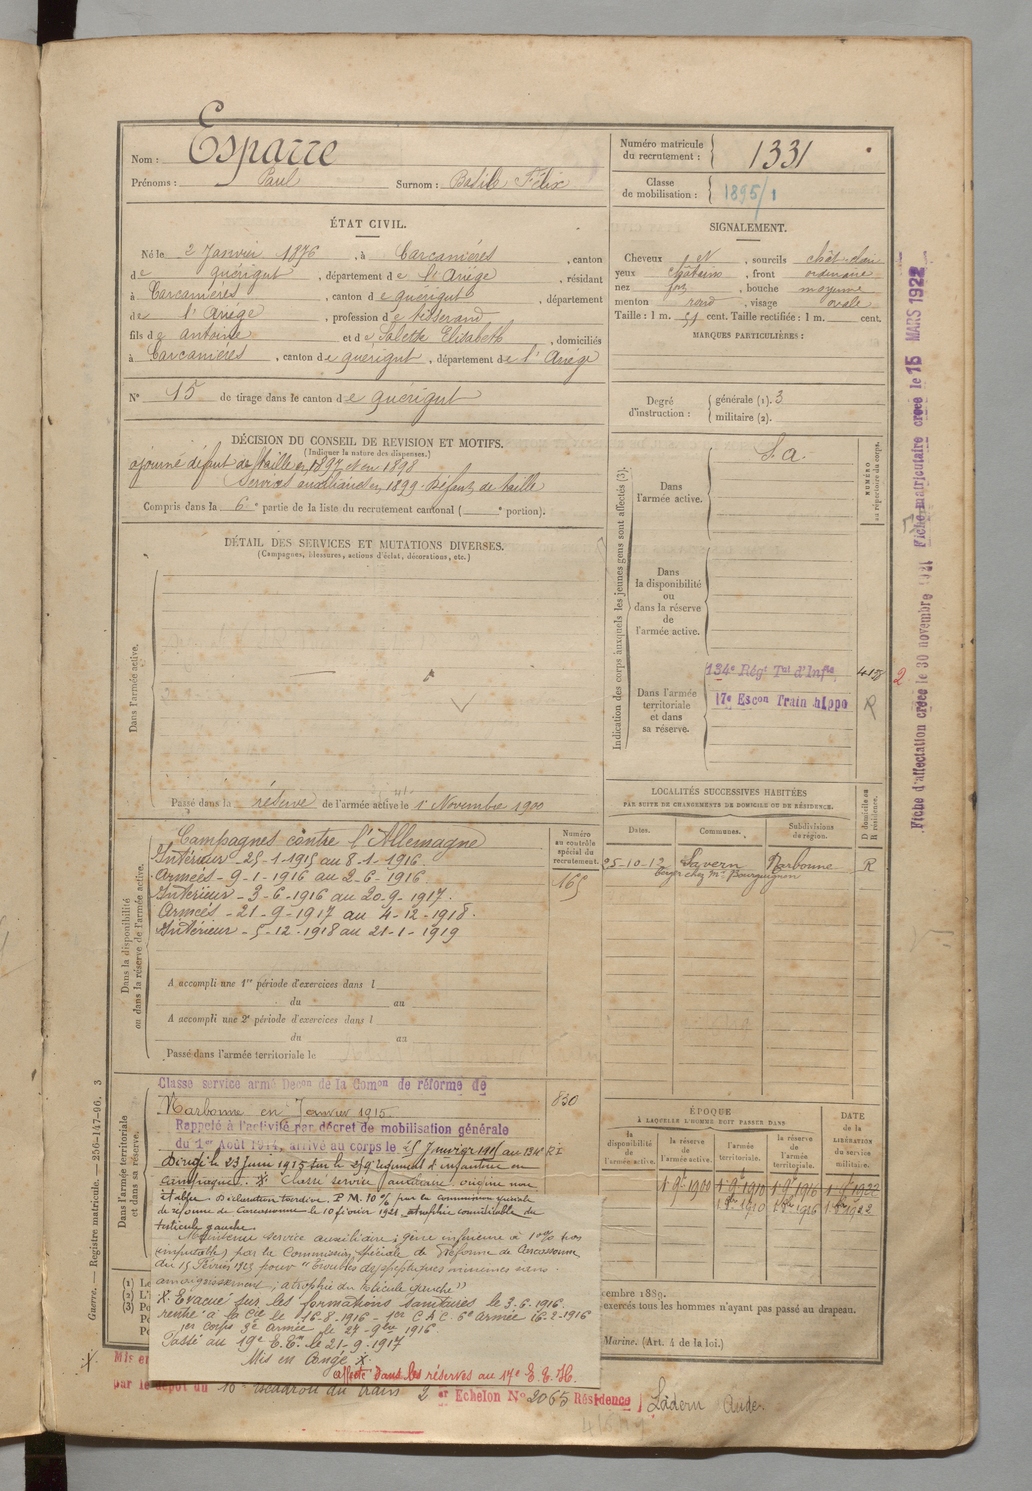 Nom : Esparre
Prénoms : Paul Surnom : Basile Félix
Numéro matricule du recrutement : 1331
Classe de mobilisation : 1895/1
ÉTAT CIVIL.
Né le 2 Janvier 1876, à Carcaniéres, canton
de quérigut, département de l'Ariége, résidant
à Carcaniéres, canton de quérigut, département
de l'Ariége, profession de tisserand
fils de antoine et de Salette Elisabeth, domiciliés
à Carcaniéres, canton de quérigut, département de l'Ariége
N° 15 de tirage dans le canton de quérigut
SIGNALEMENT.
Cheveux N, sourcils chât-clair
yeux châtains, front ordinaire
nez fort, bouche moyenne
menton rond, visage ovale
Taille : 1 m. 51 cent. Taille rectifiée : 1 m. cent.
MARQUES PARTICULIÈRES :
Degré d'instruction : générale (1). 3
militaire (2).
DÉCISION DU CONSEIL DE REVISION ET MOTIFS.
(Indiquer la nature des dispenses.)
ajourné défaut de taille en 1897 et en 1898
Services auxiliaires en 1899. Défaut de taille
Compris dans la 6e partie de la liste du recrutement cantonal ( e portion).
DÉTAIL DES SERVICES ET MUTATIONS DIVERSES.
(Campagnes, blessures, actions d'éclat, décorations, etc.)
Dans l'armée active.
Passé dans la réserve de l'armée active le 1er Novembre 1900
Indication des corps auxquels les jeunes gens sont affectés (3).
NUMÉRO au répertoire du corps.
Dans l'armée active.
S. a.
Dans la disponibilité ou dans la réserve de l'armée active.
Dans l'armée territoriale et dans sa réserve.
134e Régt Tal d'Infie
17e Escon Train hippo
R
2
LOCALITÉS SUCCESSIVES HABITÉES
PAR SUITE DE CHANGEMENTS DE DOMICILE OU DE RÉSIDENCE.
Dates. Communes. Subdivisions de région. D domicile ou R résidence.
25-10-12 Lavern Narbonne R
berger chez Mr Bourguignon
Dans la disponibilité ou dans la réserve de l'armée active.
Numéro au contrôle spécial du recrutement.
165
Campagnes contre l'Allemagne
Intérieur - 25-1-1915 au 8-1-1916
Armées - 9-1-1916 au 2-6-1916
Intérieur - 3-6-1916 au 20-9-1917.
Armées - 21-9-1917 au 4-12-1918.
Intérieur - 5-12-1918 au 21-1-1919
A accompli une 1re période d'exercices dans l
du au
A accompli une 2e période d'exercices dans l
du au
Passé dans l'armée territoriale le
Dans l'armée territoriale et dans sa réserve.
Classé service armé Decon de la Comon de réforme de
Narbonne en Janvier 1915
830
Rappelé à l'activité par décret de mobilisation générale
du 1er Août 1914, arrivé au corps le 25 Janvier 1915 au 134e RI
Dirigé le 23 Juin 1915 sur le 259e régiment d'infanterie en
campagne. X Classé service auxiliaire origine non
établie. Déclaration tardive. P.M. 10% par la commission spéciale
de réforme de Carcassonne le 10 février 1921. atrophie considérable du
testicule gauche
Maintenu service auxiliaire ; gêne inférieure à 10% (non
imputable) par la Commission spéciale de Réforme de Carcassonne
du 15 Février 1923 pour "troubles dyspeptiques minimes sans
amaigrissement ; atrophie du testicule gauche"
X. Évacué sur les formations sanitaires le 3-6-1916
rentré à la Cie le 16-8-1916 - 1er C.A.C. 6e armée 16-2-1916
1er Corps 3e armée le 27-9bre 1916
Passé au 19e E.T. le 21-9-1917
Mis en Congé X.
affecté dans les réserves au 17e E.T.H.
ÉPOQUE
À LAQUELLE L'HOMME DOIT PASSER DANS
la disponibilité de l'armée active. la réserve de l'armée active. l'armée territoriale. la réserve de l'armée territoriale.
DATE de la LIBÉRATION du service militaire.
1 9bre 1900 1 9bre 1910 1 9bre 1916 1 9bre 1922
cembre 1889.
exercés tous les hommes n'ayant pas passé au drapeau.
Marine. (Art. 4 de la loi.)
Mis en
par le dépôt du 16e escadron du train 2 er Echelon N° 2065 Résidence Ladern Aude.
Guerre. — Registre matricule. — 250-147-96. 3
Fiche d'affectation créée le 30 novembre 1921 Fiche matriculaire créée le 15 MARS 1922